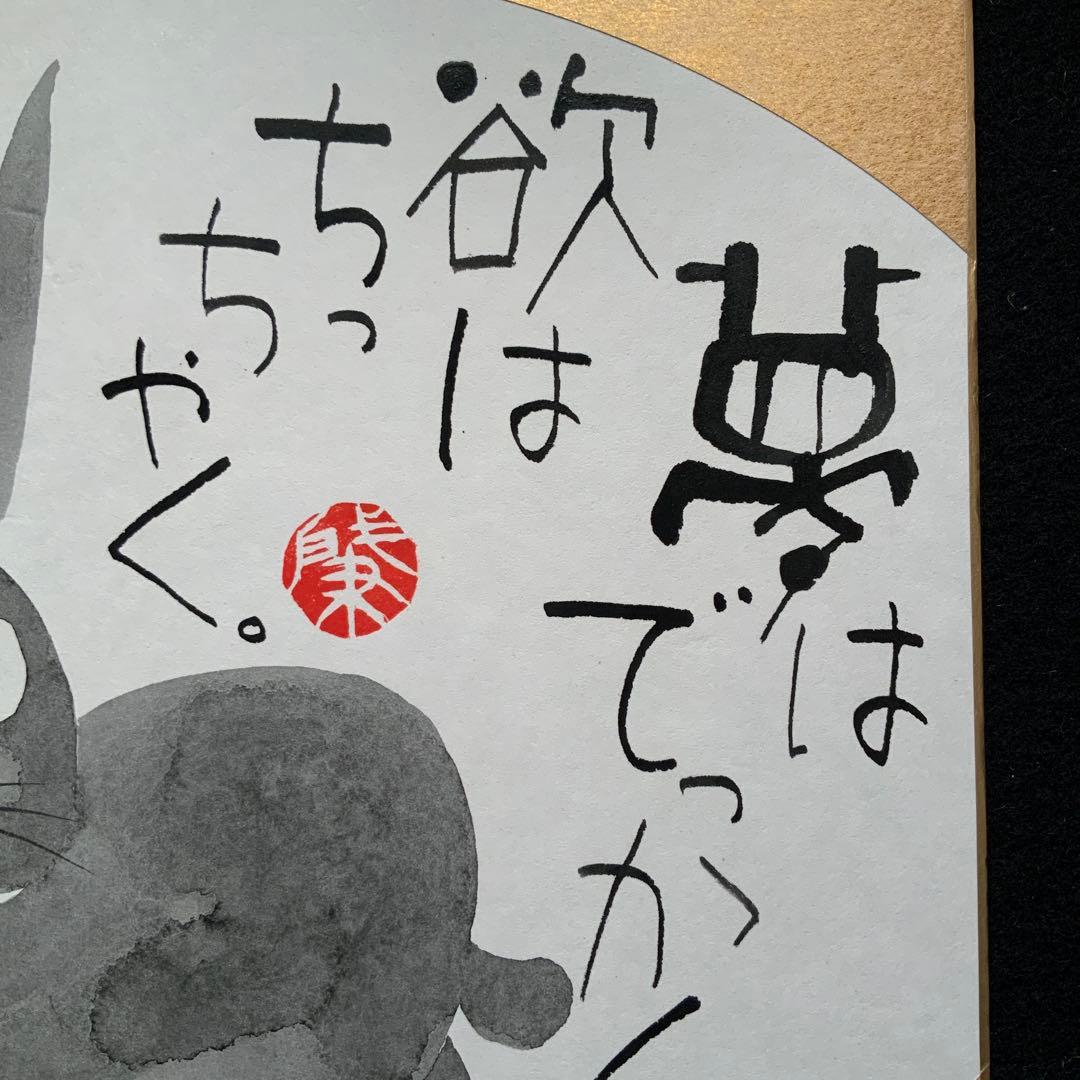 夢は
でっか
欲は
ちっ
ちゃく。